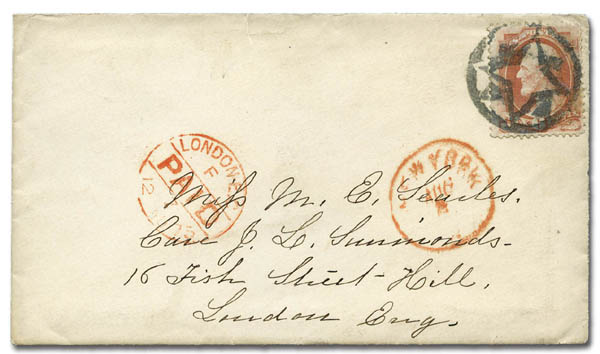 LONDON E
F
PAID
12
NEW YORK
AUG
2
Miss M. E. Searles.
Care J. L. Summonds-
16 Fish Street-Hill,
London Eng.